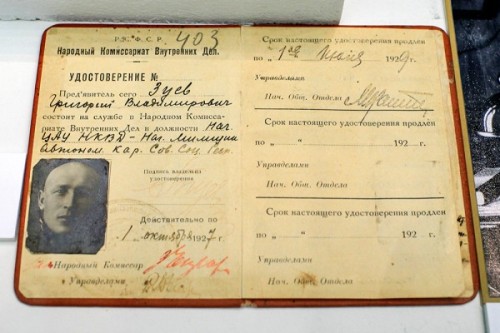 Р. С. Ф. С. Р.
403
Народный Комиссариат Внутренних Дел.
УДОСТОВЕРЕНИЕ №
Пред'явитель сего Зуев
Григорий Владимирович
состоит на службе в Народном Комисса-
риате Внутренних Дел в должности Нач.
ЦАУ НКВД - Нач. Милиции
Автоном. Кар. Сов. Соц. Респ.
Подпись владельца
удостоверения
Действительно по
1 октября 1927 г.
Народный Комиссар
Управделами
Срок настоящего удостоверения продлен
по „ 1го " Июля 1929 г.
Управделами
Нач. Общ. Отдела
Срок настоящего удостоверения продлен
по „ " 192 г.
Управделами
Нач. Общ. Отдела
Срок настоящего удостоверения продлен
по „ " 192 г.
Управделами
Нач. Общ. Отдела